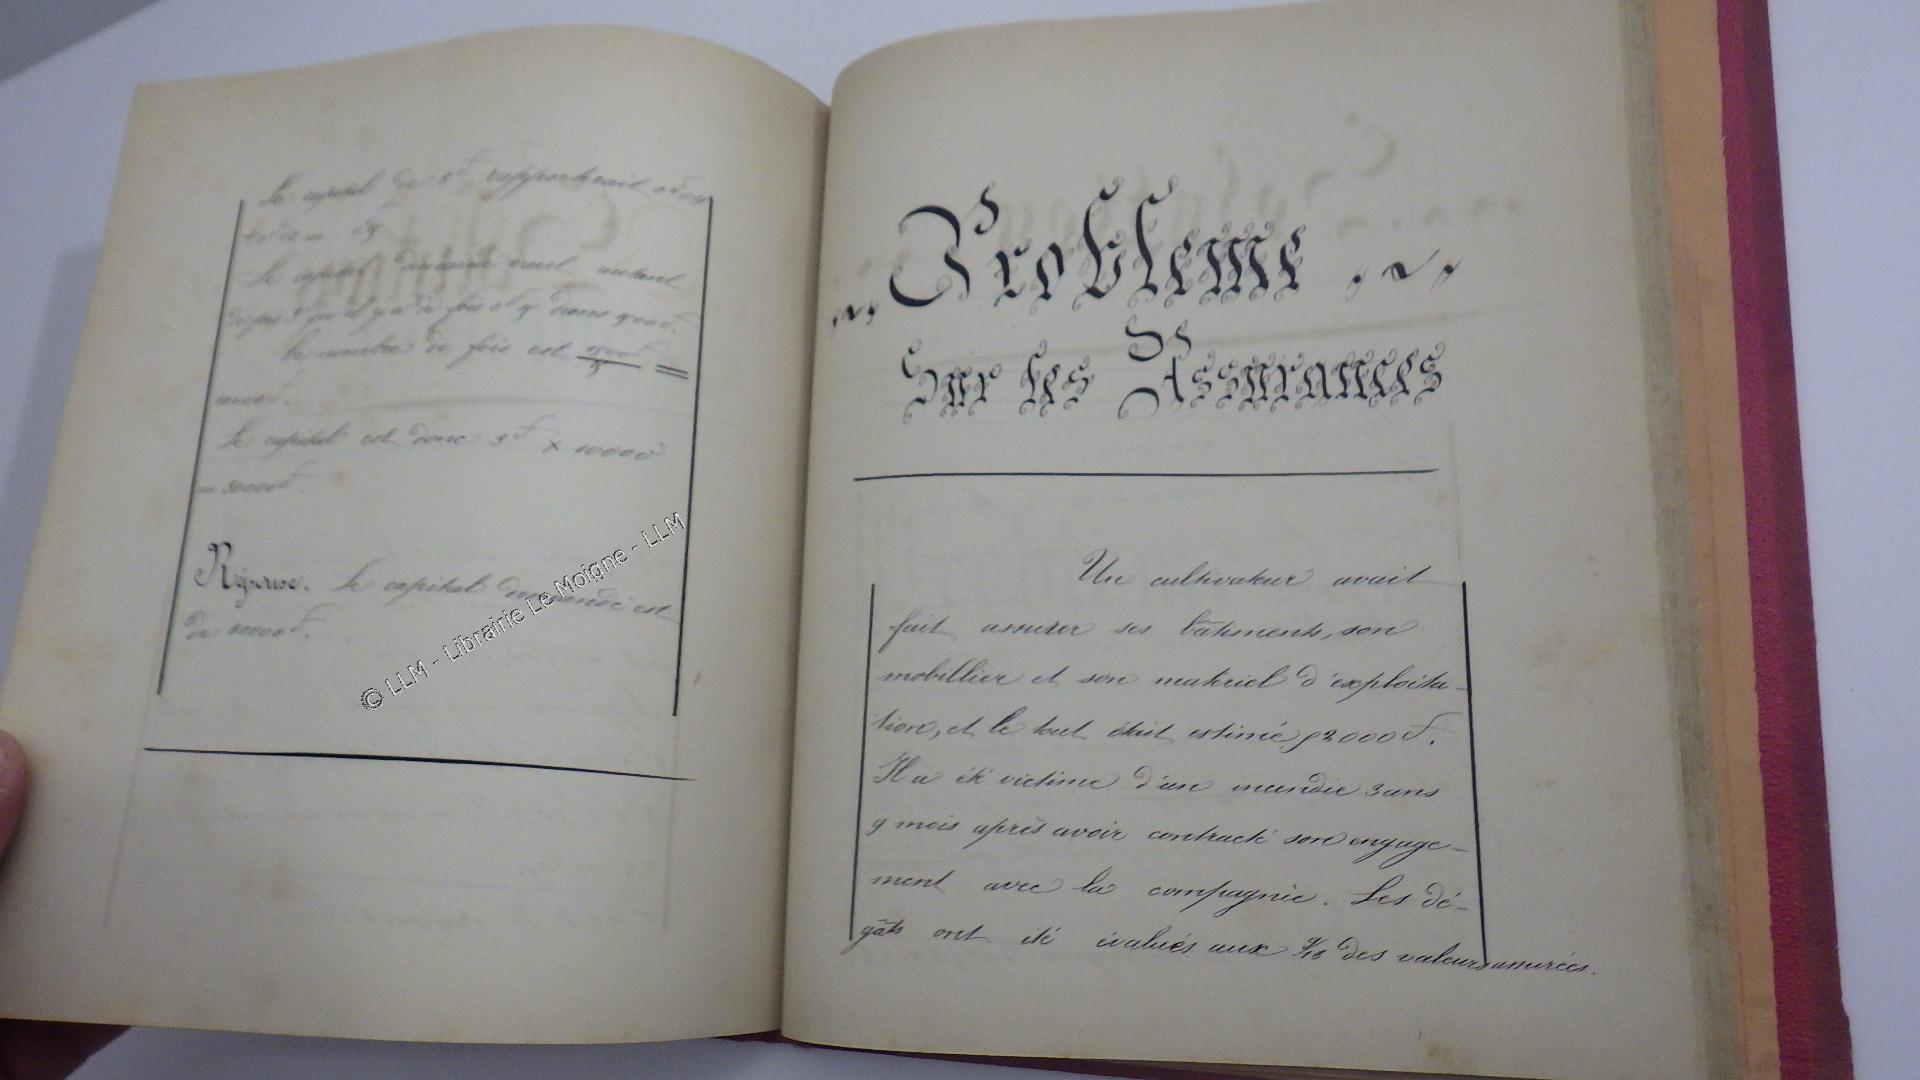 Le capital de 3f rapporterait
Le capital demandé vaut autant
de fois 3f qu'il y a de fois dans
Le nombre de fois est
Le capital est donc 3f × 10000
= 30000f.
Réponse. Le capital demandé est
de 30000f.
© LLM - Librairie Le Moigne - LLM
Probleme
Sur les Assurances
Un cultivateur avait
fait assurer ses bâtiments, son
mobillier et son matériel d'exploita-
tion, et le tout était estimé 93000f.
Il a été victime d'un incendie 3 ans
9 mois après avoir contracté son engage-
ment avec la compagnie. Les dé-
gâts ont été évalués aux des valeurs assurées.